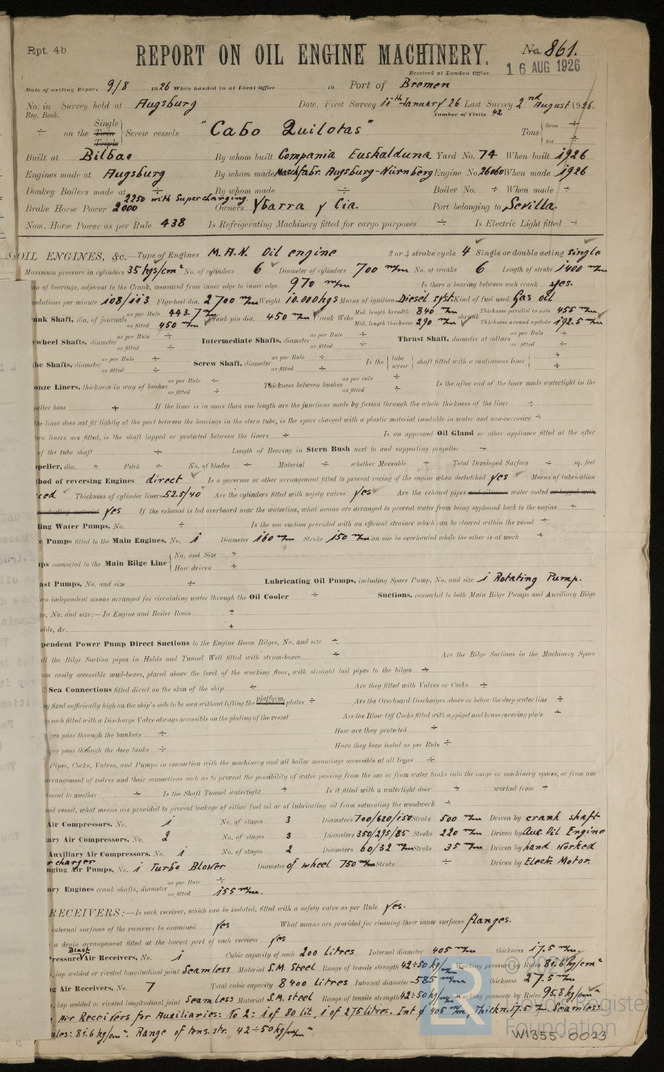 Rpt. 4b
REPORT ON OIL ENGINE MACHINERY.
No. 861.
Received at London Office
16 AUG 1926
Date of writing Report 9/8 1926 When handed in at Local Office 19 Port of Bremen
No. in Survey held at Augsburg Date, First Survey 11th January 26 Last Survey 2nd August 1926.
Reg. Book. Number of Visits 42
÷ on the Single Twin Triple Screw vessels "Cabo Quilotas" Tons Gross ÷ Net ÷
Built at Bilbao By whom built Compania Euskalduna Yard No. 74 When built 1926
Engines made at Augsburg By whom made Maschfabr. Augsburg-Nürnberg Engine No. 26060 When made 1926
Donkey Boilers made at ÷ By whom made ÷ Boiler No. ÷ When made ÷
Brake Horse Power 2250 with Supercharging 2000 Owners Ybarra y Cia. Port belonging to Sevilla.
Nom. Horse Power as per Rule 438 Is Refrigerating Machinery fitted for cargo purposes ÷ Is Electric Light fitted ÷
OIL ENGINES, &c.—Type of Engines M.A.N. Oil engine 2 or 4 stroke cycle 4 Single or double acting single
Maximum pressure in cylinders 35 kgs/cm² No. of cylinders 6 Diameter of cylinders 700 m/m No. of cranks 6 Length of stroke 1400 m/m
of bearings, adjacent to the Crank, measured from inner edge to inner edge 970 m/m Is there a bearing between each crank yes.
Revolutions per minute 108/113 Flywheel dia. 2700 m/m Weight 10.000 kgs Means of ignition Diesel syst. Kind of fuel used Gas oil
Crank Shaft, dia. of journals as per Rule 443.7 as fitted 450 m/m Crank pin dia. 450 m/m Crank Webs Mid. length breadth 840 m/m Mid. length thickness 290 m/m shrunk Thickness parallel to axis 455 m/m Thickness around eyehole 192.5 m/m
Flywheel Shafts, diameter as per Rule ÷ as fitted Intermediate Shafts, diameter as per Rule ÷ as fitted Thrust Shaft, diameter at collars as per Rule ÷ as fitted
Tube Shafts, diameter as per Rule ÷ as fitted Screw Shaft, diameter as per Rule ÷ as fitted Is the tube screw shaft fitted with a continuous liner ÷
Bronze Liners, thickness in way of bushes as per Rule ÷ as fitted Thickness between bushes as per rule ÷ as fitted Is the after end of the liner made watertight in the
propeller boss ÷ If the liner is in more than one length are the junctions made by fusion through the whole thickness of the liner ÷
the liner does not fit tightly at the part between the bearings in the stern tube, is the space charged with a plastic material insoluble in water and non-corrosive ÷
two liners are fitted, is the shaft lapped or protected between the liners ÷ Is an approved Oil Gland or other appliance fitted at the after
of the tube shaft ÷ Length of Bearing in Stern Bush next to and supporting propeller ÷
Propeller, dia. ÷ Pitch ÷ No. of blades ÷ Material ÷ whether Moveable ÷ Total Developed Surface ÷ sq. feet
Method of reversing Engines direct Is a governor or other arrangement fitted to prevent racing of the engine when declutched yes Means of lubrication
Thickness of cylinder liners 52.5/40 Are the cylinders fitted with safety valves yes Are the exhaust pipes and silencers water cooled or lagged with
yes If the exhaust is led overboard near the waterline, what means are arranged to prevent water being syphoned back to the engine ÷
Cooling Water Pumps, No. ÷ Is the sea suction provided with an efficient strainer which can be cleared within the vessel ÷
Pumps fitted to the Main Engines, No. 1 Diameter 160 m/m Stroke 150 m/m Can one be overhauled while the other is at work ÷
Pumps connected to the Main Bilge Line No. and Size ÷ How driven ÷
Ballast Pumps, No. and size ÷ Lubricating Oil Pumps, including Spare Pump, No. and size 1 Rotating Pump.
independent means arranged for circulating water through the Oil Cooler ÷ Suctions, connected to both Main Bilge Pumps and Auxiliary Bilge
No. and size:—In Engine and Boiler Room ÷
Holds, &c. ÷
Independent Power Pump Direct Suctions to the Engine Room Bilges, No. and size ÷
all the Bilge Suction pipes in Holds and Tunnel Well fitted with strum-boxes ÷ Are the Bilge Suctions in the Machinery Space
easily accessible mud-boxes, placed above the level of the working floor, with straight tail pipes to the bilges ÷
Sea Connections fitted direct on the skin of the ship ÷ Are they fitted with Valves or Cocks ÷
fixed sufficiently high on the ship's side to be seen without lifting the platform plates ÷ Are the Overboard Discharges above or below the deep water line ÷
each fitted with a Discharge Valve always accessible on the plating of the vessel Are the Blow Off Cocks fitted with a spigot and brass covering plate ÷
pipes pass through the bunkers ÷ How are they protected ÷
pipes pass through the deep tanks ÷ Have they been tested as per Rule ÷
Pipes, Cocks, Valves, and Pumps in connection with the machinery and all boiler mountings accessible at all times ÷
arrangement of valves and their connections such as to prevent the possibility of water passing from the sea or from water tanks into the cargo or machinery spaces, or from one
compartment to another ÷ Is the Shaft Tunnel watertight ÷ Is it fitted with a watertight door ÷ worked from ÷
wood vessel, what means are provided to prevent leakage of either fuel oil or of lubricating oil from saturating the woodwork ÷
Air Compressors, No. 1 No. of stages 3 Diameters 700/620/150 Stroke 500 m/m Driven by crank shaft
Auxiliary Air Compressors, No. 2 No. of stages 3 Diameters 350/295/85 Stroke 220 m/m Driven by Aux. Oil Engine
Auxiliary Air Compressors, No. 1 No. of stages 2 Diameters 60/32 m/m Stroke 35 m/m Driven by hand worked
charger
Scavenging Air Pumps, No. 1 Turbo Blower Diameter of wheel 750 m/m Stroke ÷ Driven by Electr. Motor.
Auxiliary Engines crank shafts, diameter as per Rule as fitted 155 m/m.
RECEIVERS:—Is each receiver, which can be isolated, fitted with a safety valve as per Rule yes.
internal surfaces of the receivers be examined yes What means are provided for cleaning their inner surfaces flanges.
a drain arrangement fitted at the lowest part of each receiver yes
Blast
Pressure Air Receivers, No. 1 Cubic capacity of each 200 litres Internal diameter 405 m/m thickness 17.5 m/m.
lap welded or riveted longitudinal joint Seamless Material S.M. Steel Range of tensile strength 42÷50 kg/m/m² Working pressure by Rules 81.6 kg/cm²
Starting Air Receivers, No. 7 Total cubic capacity 8400 litres Internal diameter 585 m/m thickness 27.5 m/m.
lap welded or riveted longitudinal joint Seamless Material S.M. steel Range of tensile strength 42÷50 kg/m/m² Working pressure by Rules 95.8 kg/cm²
Air Receivers for Auxiliaries: No 2: 1 of 80 lit. 1 of 275 litres. Int ø 405 m/m, thickn. 17.5 m/m. Seamless.
Rules: 81.6 kg/cm². Range of tens. str. 42÷50 kg/m/m²
Lloyd's Register
Foundation
W1355-0023